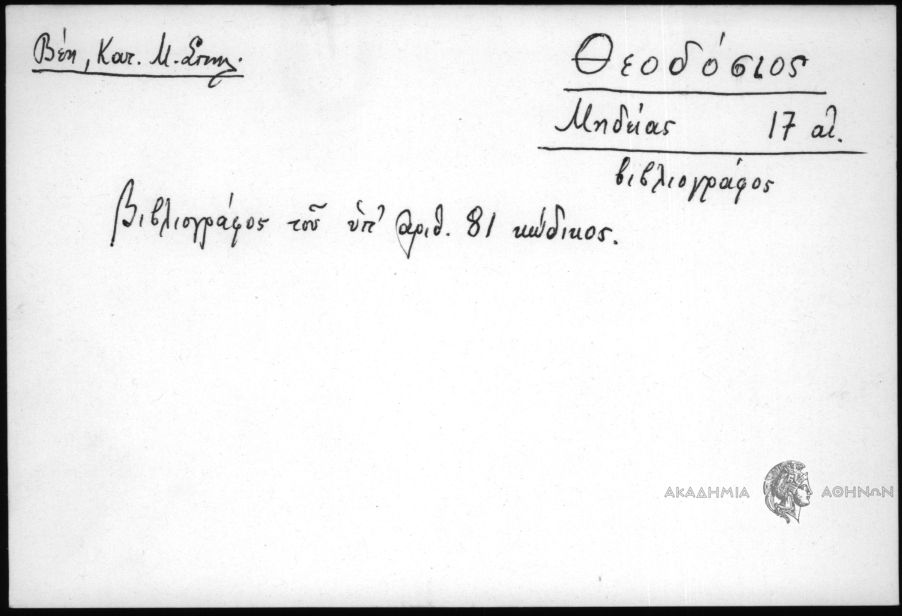 Βέη, Κατ. Μ. Σπηλ.
Θεοδόσιος
Μηδείας 17 αἰ.
βιβλιογράφος
Βιβλιογράφος τοῦ ὑπ' ἀριθ. 81 κώδικος.
ΑΚΑΔΗΜΙΑ ΑΘΗΝΩΝ